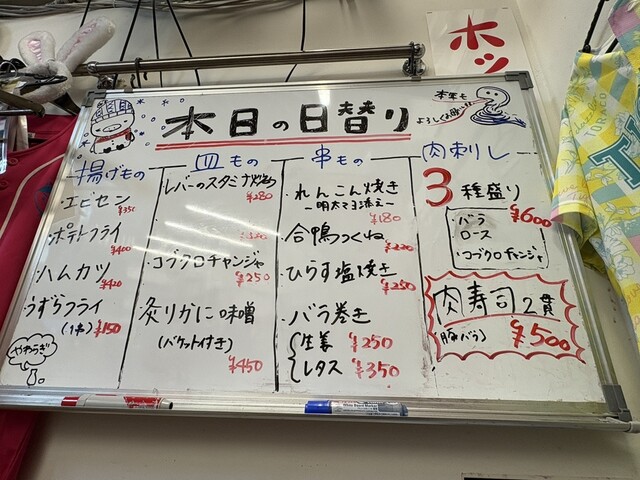 ホッ
本日の日替り
本年も
よろしくお願い
揚げもの
エビセン
¥350
ポテトフライ
¥400
ハムカツ
¥420
うずらフライ
(1串) ¥150
やわらぎ
皿もの
レバーのスタミナ炒め
¥280
・コブクロチャンジャ
¥250
炙りかに味噌
(バケット付き)
¥450
串もの
・れんこん焼き
ー明太マヨ添えー
¥180
・合鴨つくね
¥220
・ひらす塩焼き
¥250
・バラ巻き
生姜 ¥250
レタス ¥350
肉刺し
3種盛り
¥600
・バラ
ロース
・コブクロチャンジャ
肉寿司 2貫
(豚バラ) ¥500